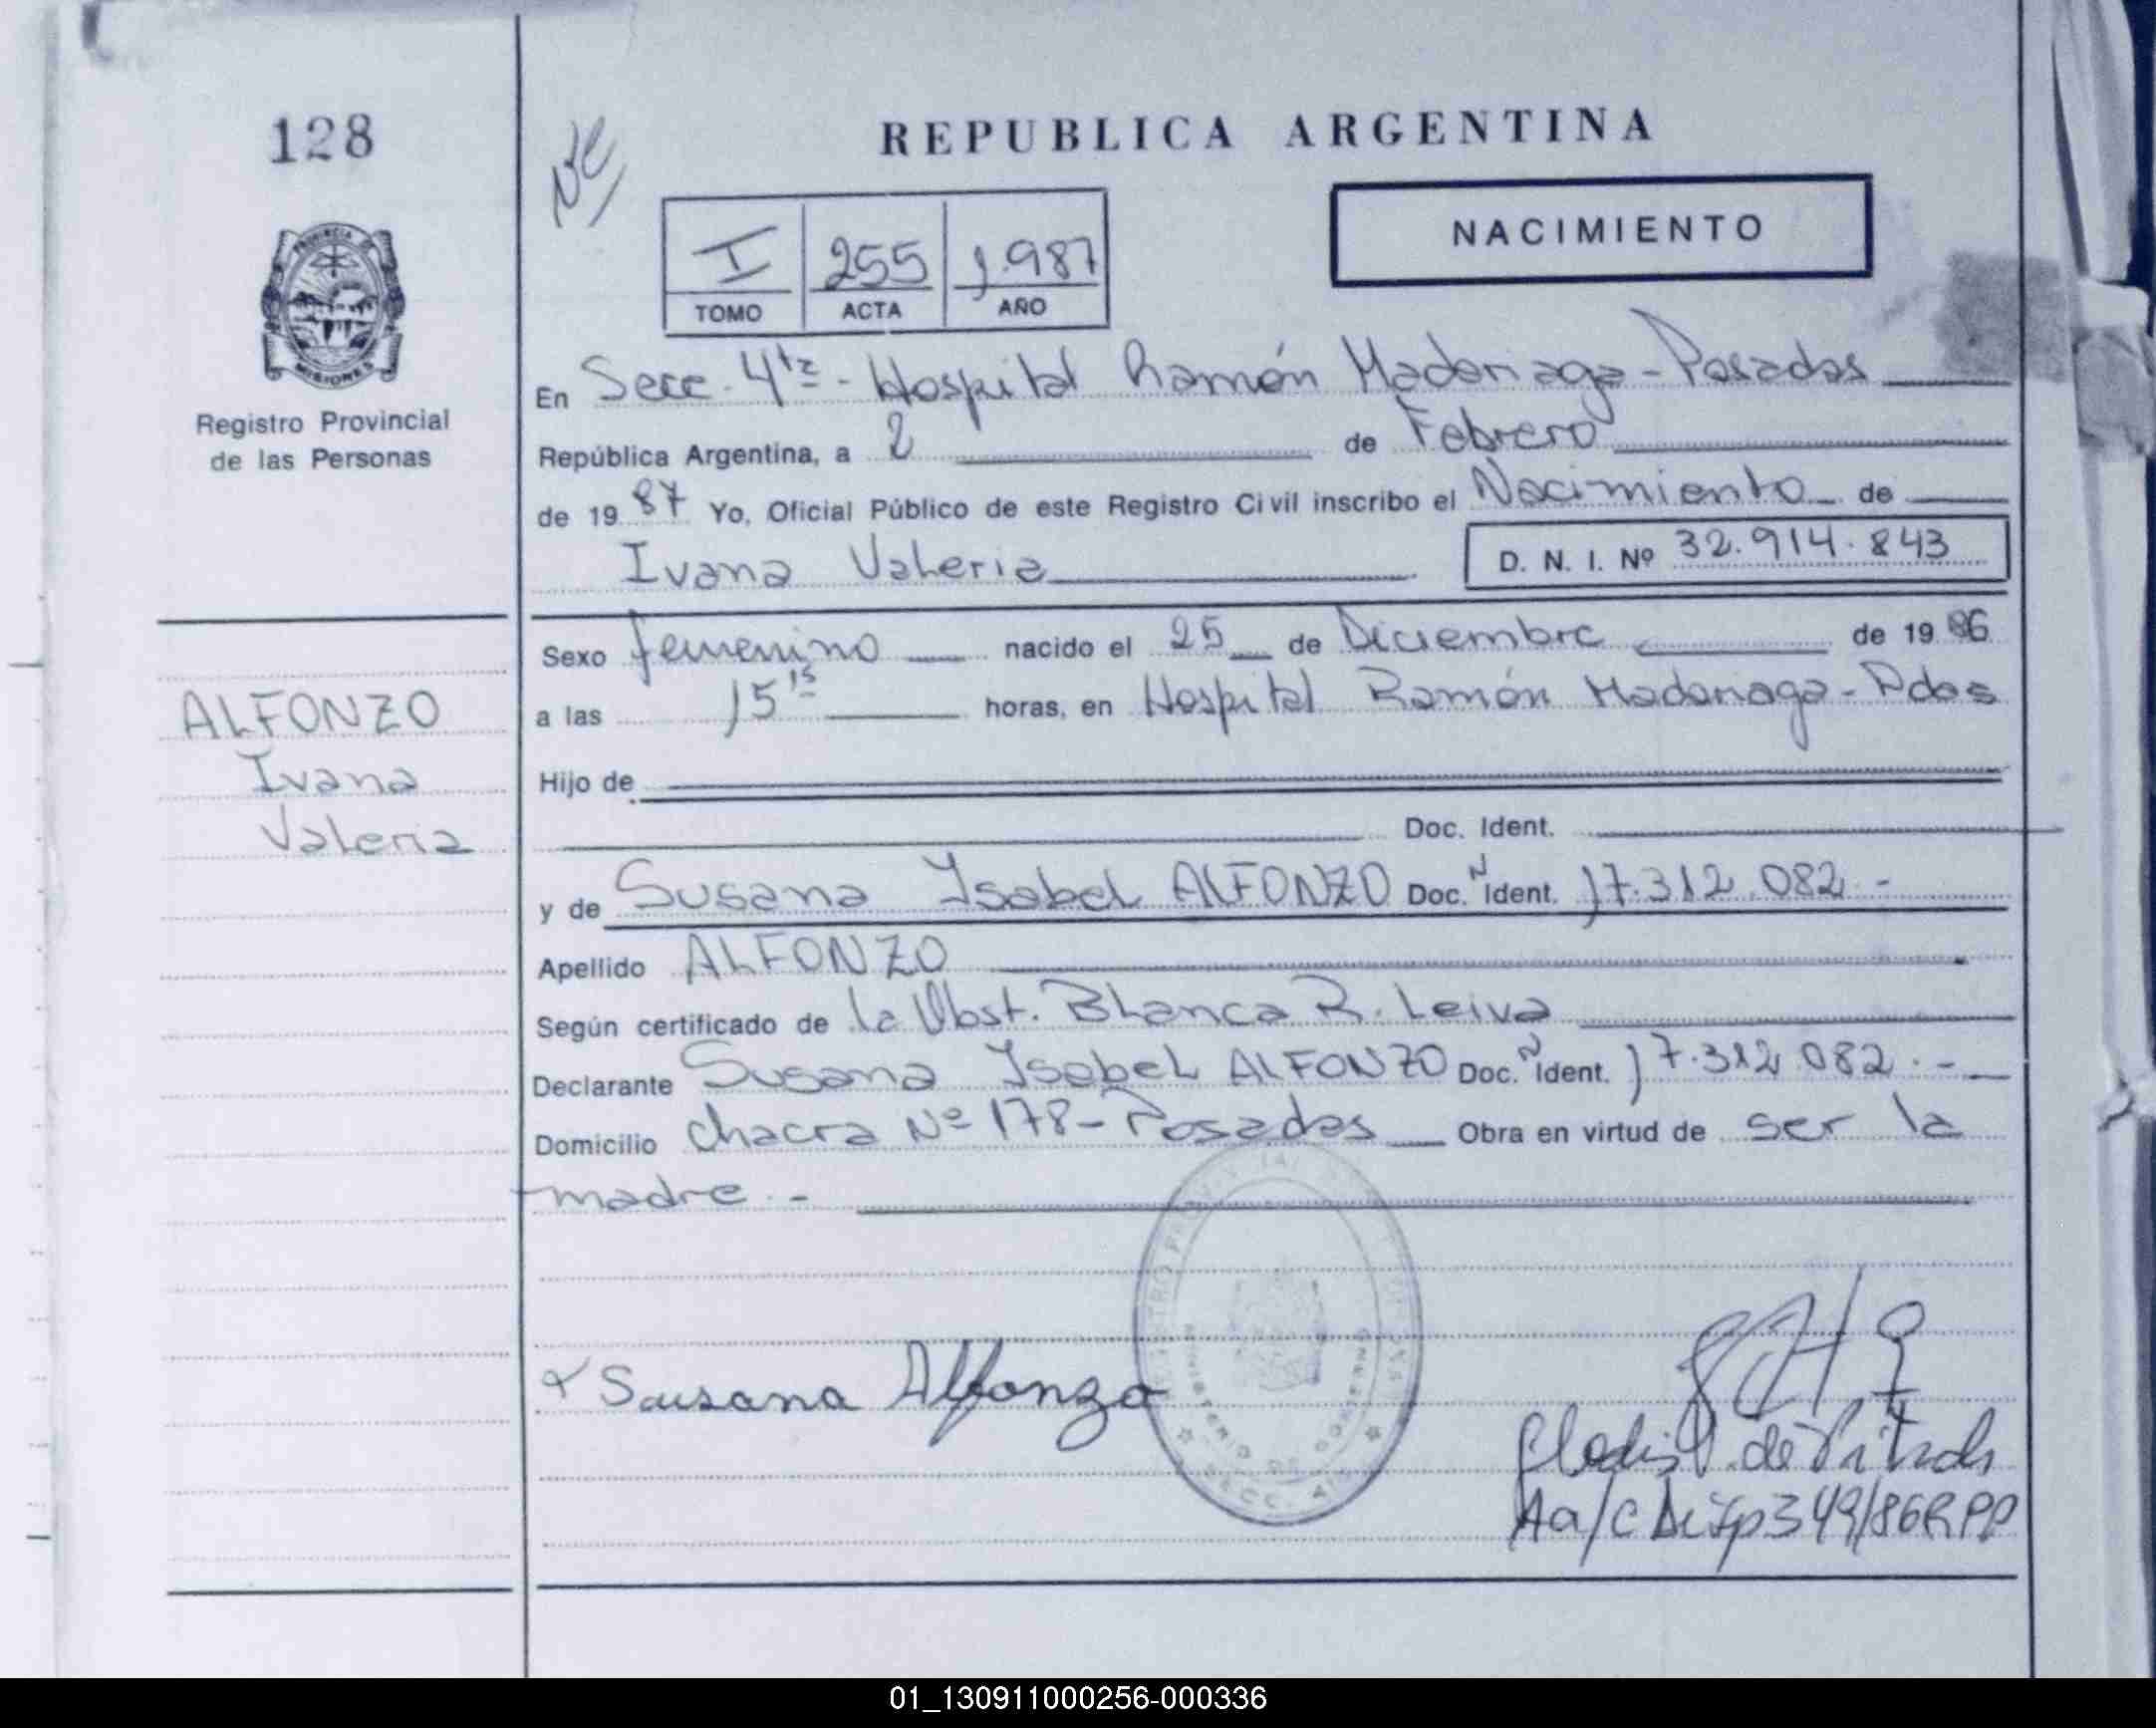 128
REPUBLICA ARGENTINA
I 255 1.987
TOMO ACTA AÑO
NACIMIENTO
PROVINCIA DE
MISIONES
Registro Provincial
de las Personas
En Secc. 4ta - Hospital Ramón Madariaga - Posadas
República Argentina, a 2 de Febrero
de 1987 Yo, Oficial Público de este Registro Civil inscribo el Nacimiento de
Ivana Valeria D. N. I. Nº 32.914.843
Sexo femenino nacido el 25 de Diciembre de 1986
a las 15 15 horas, en Hospital Ramón Madariaga - Pdas
ALFONZO
Ivana
Valeria
Hijo de
Doc. Ident.
y de Susana Ysabel ALFONZO Doc. N Ident. 17.312.082 -
Apellido ALFONZO
Según certificado de la Obst. Blanca R. Leiva
Declarante Susana Ysabel ALFONZO Doc. N Ident. 17.312.082.-
Domicilio Chacra Nº 178 - Posadas Obra en virtud de ser la
madre.-
Susana Alfonzo
MINISTERIO DE GOBIERNO
SECC. 4ta
de
349/86 RPP
01_130911000256-000336